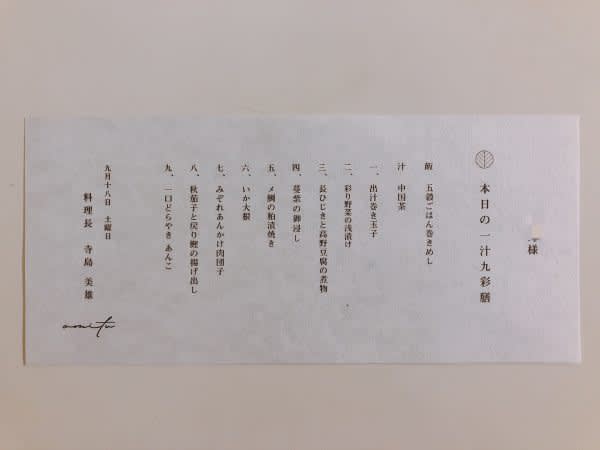 様
本日の一汁九彩膳
飯　五穀ごはん巻きめし
汁　中国茶
一、出汁巻き玉子
二、彩り野菜の浅漬け
三、長ひじきと高野豆腐の煮物
四、蔓紫の御浸し
五、メ鯛の粕漬焼き
六、いか大根
七、みぞれあんかけ肉団子
八、秋茄子と戻り鰹の揚げ出し
九、一口どらやき あんこ
九月十八日　土曜日
料理長　寺島　美雄